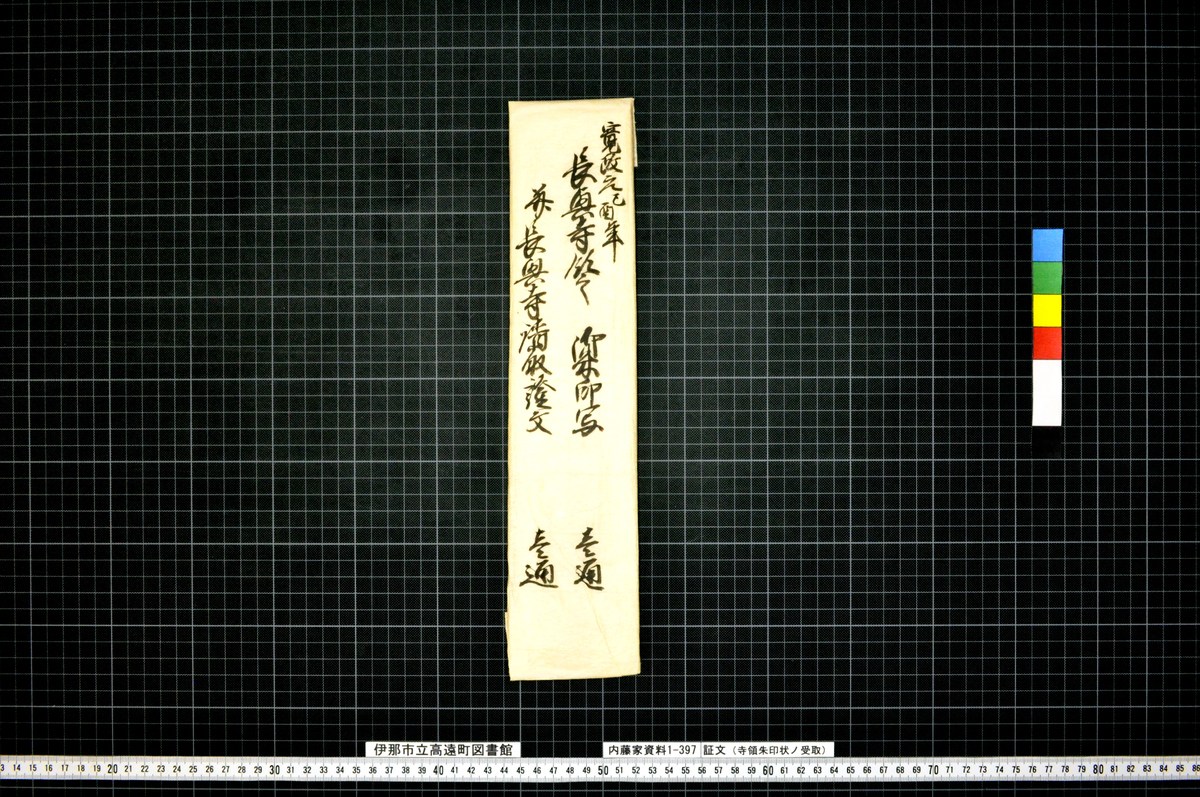 寛政元己酉年
長興寺領 御朱印写 壱通
并長興寺請取證文 壱通
伊那市立高遠町図書館
内藤家資料1-397 証文（寺領朱印状ノ受取）
3 14 15 16 17 18 19 20 21 22 23 24 25 26 27 28 29 30 31 32 33 34 35 36 37 38 39 40 41 42 43 44 45 46 47 48 49 50 51 52 53 54 55 56 57 58 59 60 61 62 63 64 65 66 67 68 69 70 71 72 73 74 75 76 77 78 79 80 81 82 83 84 85 86